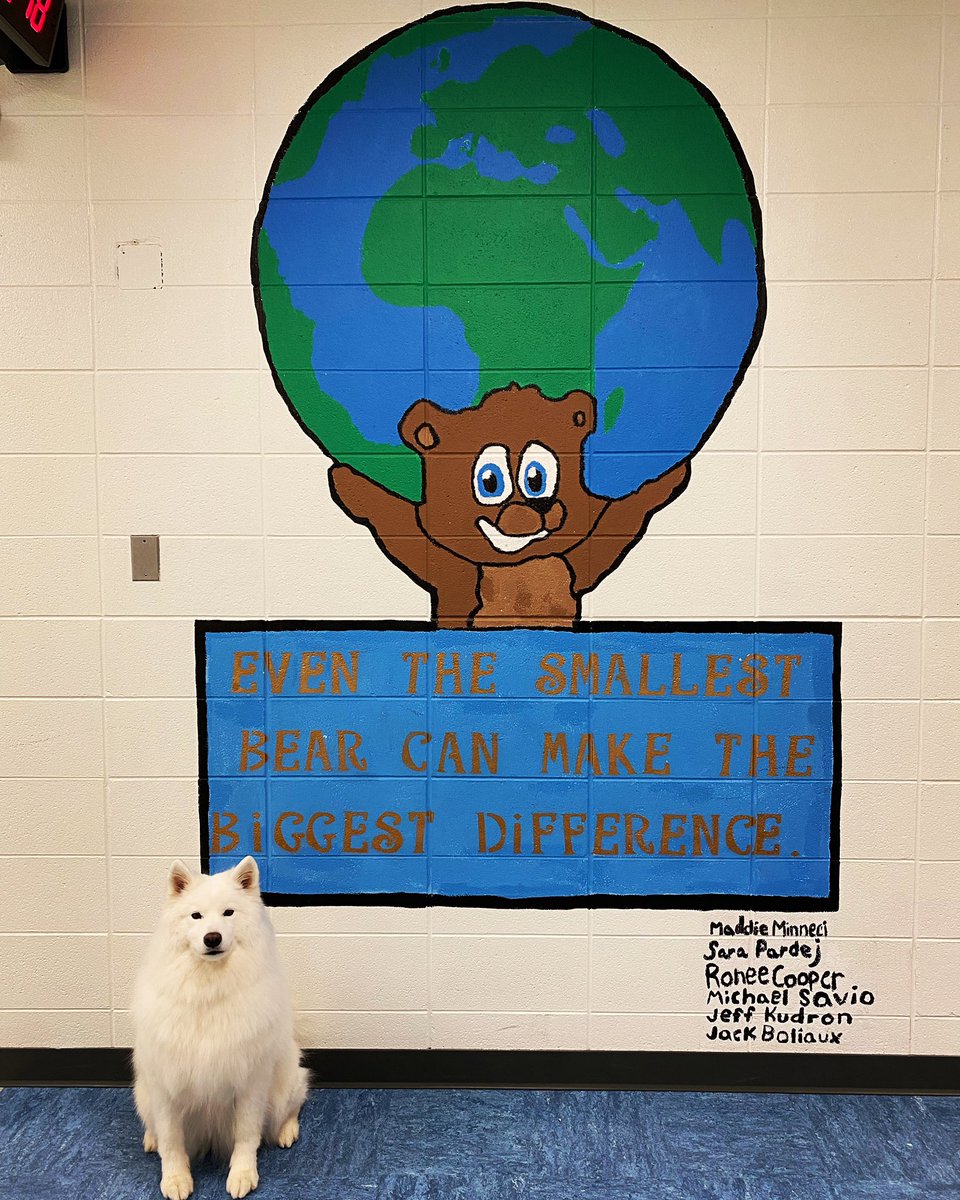 18
EVEN THE SMALLEST
BEAR CAN MAKE THE
BiGGEST DiFFERENCE.
Maddie Minneci
Sara Pardej
Ronee Cooper
Michael Savio
Jeff Kudron
Jack Boliaux